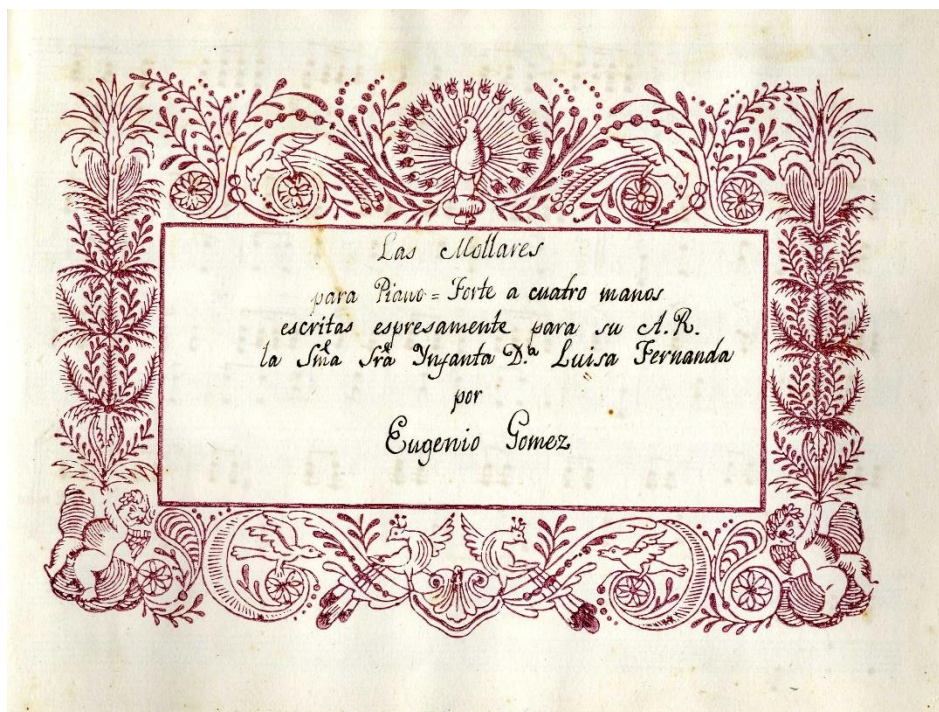 Las Mollares
para Piano = Forte a cuatro manos
escritas espresamente para su A. R.
la Sma Sra Ynfanta D.a Luisa Fernanda
por
Eugenio Gomez